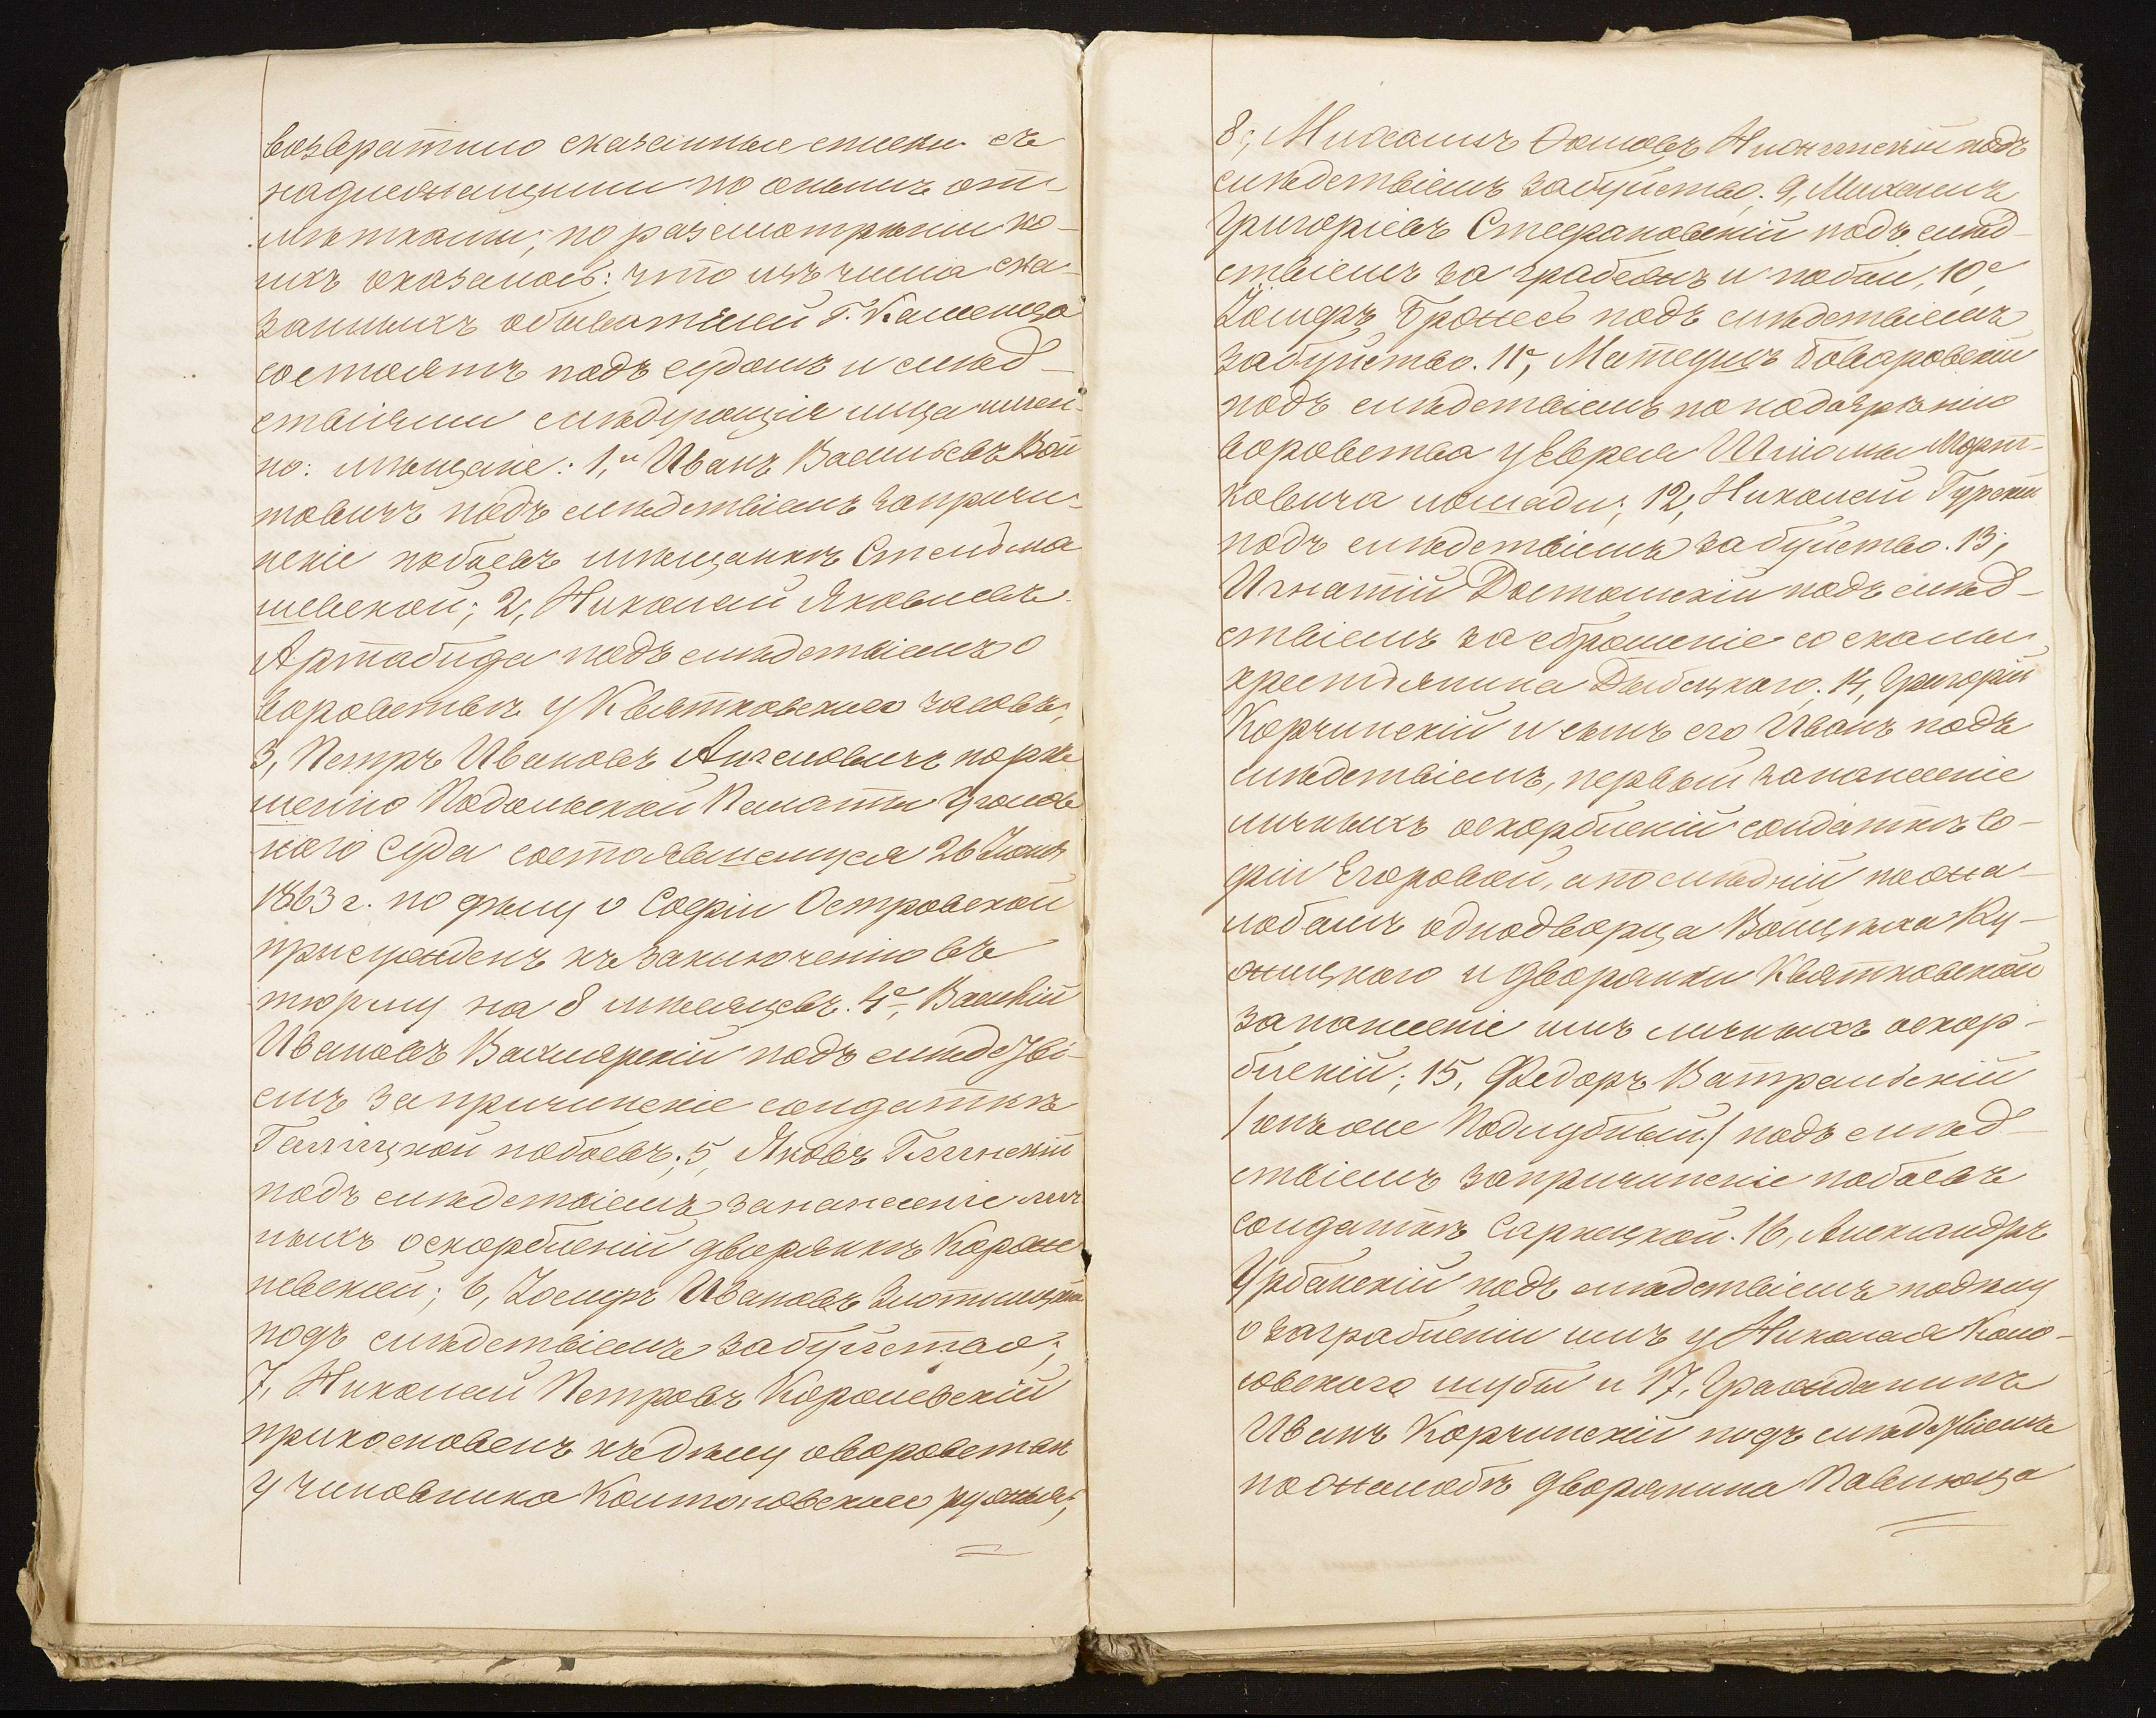 возвратило сказанные списки съ
надлежащими по онымъ от-
мѣтками, по разсмотрѣнiи ко-
ихъ оказалось: что изъ числа ска-
занныхъ обывателей Г. Каменца
состоятъ подъ судомъ и слѣд-
ствiями слѣдующiя лица имен-
но: мѣщане: 1, Иванъ Васильевъ Вой
товичъ подъ слѣдствiемъ запричи-
ненiе побоевъ мѣщанкѣ Стельма
шевской; 2, Николай Яковлевъ
Артабида подъ слѣдствiемъ о
воровствѣ у Квятковскаго часовъ,
3, Петръ Ивановъ Ангеловичъ порѣ
шенiю Подольской Палаты Уголов
наго Суда состоявшемуся 26 Iюня
1863 г. по дѣлу о Софiи Островской
присужденъ къ заключенiю въ
тюрму на 8 мѣсяцевъ. 4, Василiй
Ивановъ Вахлярскiй подъ слѣдствi-
емъ запричиненiе солдаткѣ
Галицкой побоевъ; 5, Яковъ Глинскiй
подъ слѣдствiемъ зананесенiе лич
ныхъ оскорбленiй дворянкѣ Корже
невской; 6, Iосифъ Ивановъ
подъ слѣдствiемъ забуйство;
7, Николай Петровъ Королевскiй
прикосновенъ къ дѣлу оворовствѣ
у чиновника Контоловскаго ружья;
8, Михаилъ Фомовъ Нижинскiй подъ
слѣдствiемъ забуйство. 9, Михаилъ
Григорiевъ Стефановскiй подъ слѣд-
ствiемъ за грабежъ и побои, 10,
Iосифъ Бронесъ подъ слѣдствiемъ
забуйство. 11, Матеушъ Боваровскiй
подъ слѣдствiемъ по подозрѣнiю
воровства у Еврея Шлiомы Морт-
ковича лошади; 12, Николай Гурскiй
подъ слѣдствiемъ забуйство. 13,
Игнатiй Достоинскiй подъ слѣд-
ствiемъ за сброшенiе со скалы
крестьянина Дембицкаго. 14, Григорiй
Корчинскiй и сынъ его Иванъ подъ
слѣдствiемъ, первый зананесенiе
личныхъ оскорбленiй солдаткѣ Со-
фiи Егоровой, а последнiй пожа-
лобамъ однодворца Войцѣха Ку-
жицкаго и дворянки Квятковской
зананесенiе имъ личныхъ оскор-
бленiй; 15, Федоръ Ватральскiй
/онъ же Подлубный/ подъ слѣд-
ствiемъ запричиненiе побоевъ
солдаткѣ Сарнецкой. 16, Александръ
Урбанскiй подъ слѣдствiемъ подѣлу
о заграбленiи имъ у Николая Коно-
ловскаго шубы и 17, Гражданинъ
Иванъ Корчинскiй подъ слѣдствiемъ
пожалобѣ дворянина Павлюца